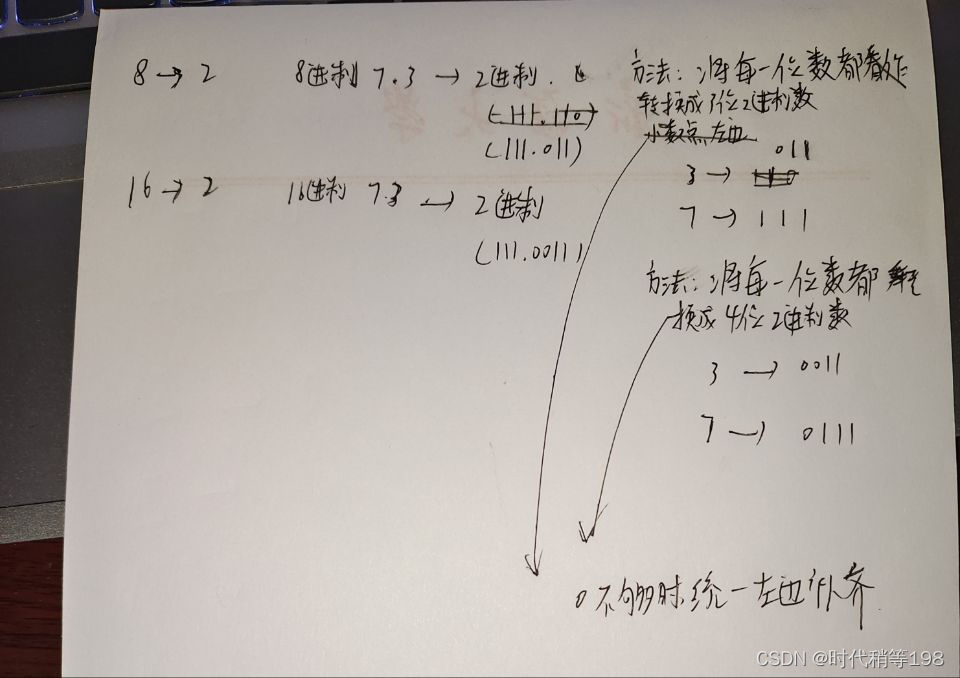 8→2 8进制 7.3 → 2进制.
(111.110)
(111.011)
方法:将每一位数都看作
转换成3位2进制数
小数点左边
011
3→
7→111
16→2 16进制 7.3 → 2进制
(111.0011)
方法:将每一位数都
换成4位2进制数
3→0011
7→0111
0不够时统一左边补齐
CSDN @时代稍等198